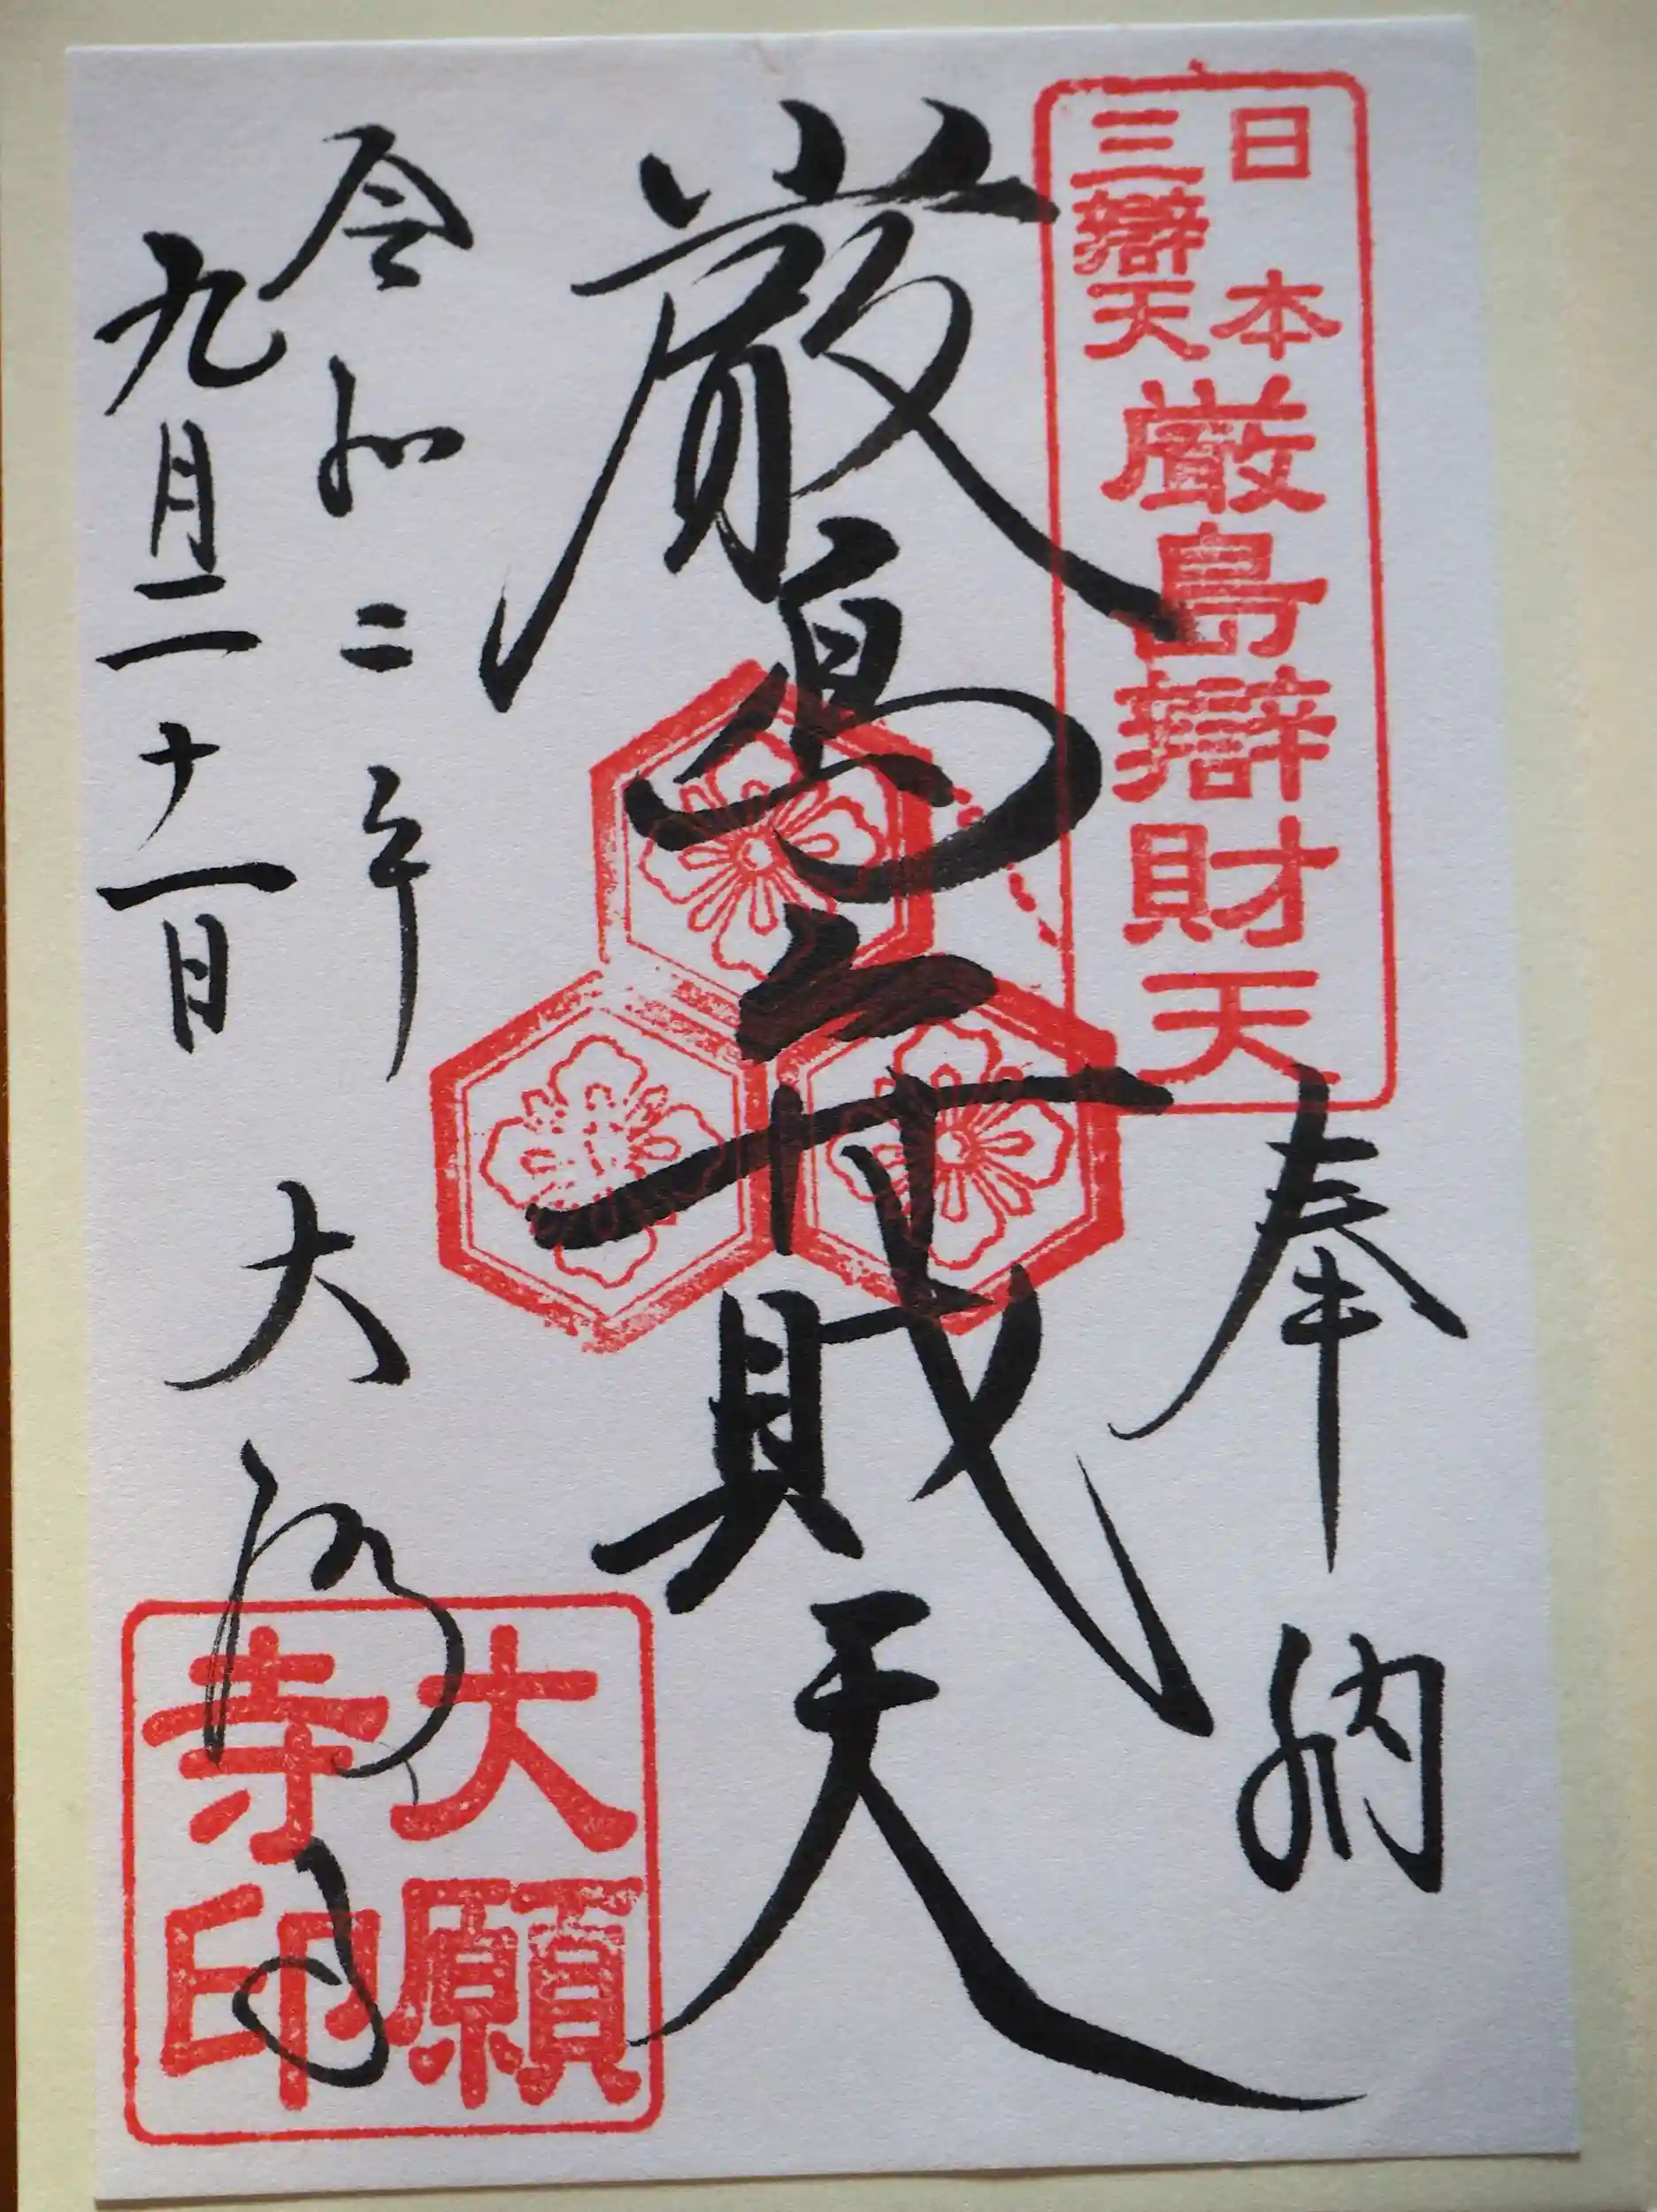 日本
三辯天
厳島辯財天
奉納
厳島弁財天
令和二年
九月二十一日
大願寺
大願
寺印